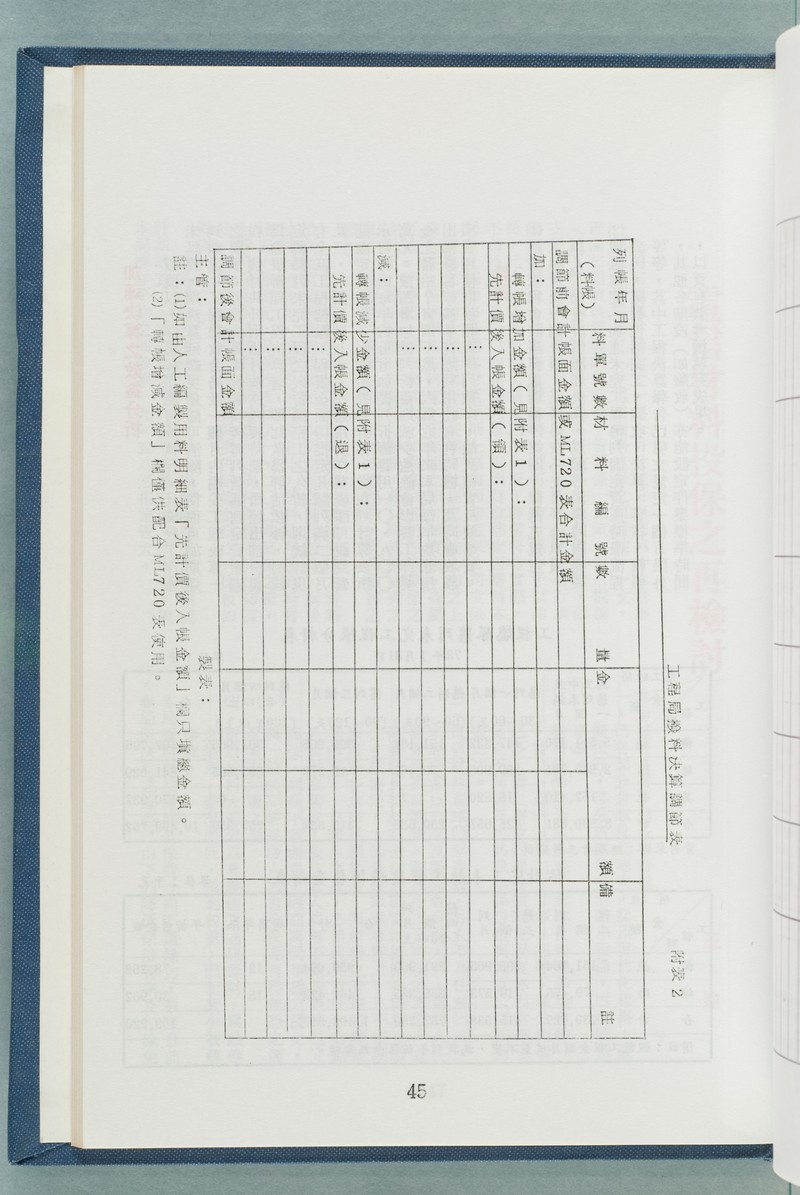 附表2
工程局撥料決算調節表
列帳年月(料帳) 料單號數 材料編號 數量 金額 備註
調節前會計帳面金額或ML720表合計金額
加：
轉帳增加金額（見附表1）：
先計價後入帳金額（領）：
⋮
⋮
⋮
⋮
減：
轉帳減少金額（見附表1）：
先計價後入帳金額（退）：
⋮
⋮
⋮
⋮
調節後會計帳面金額
主管： 製表：
註：(1)如由人工編製用料明細表「先計價後入帳金額」欄只填總金額。
(2)「轉帳增減金額」欄僅供配合ML720表使用。
45